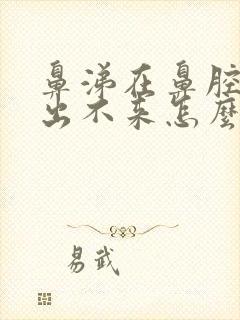 鼻涕在鼻腔
出不来怎麽
易武